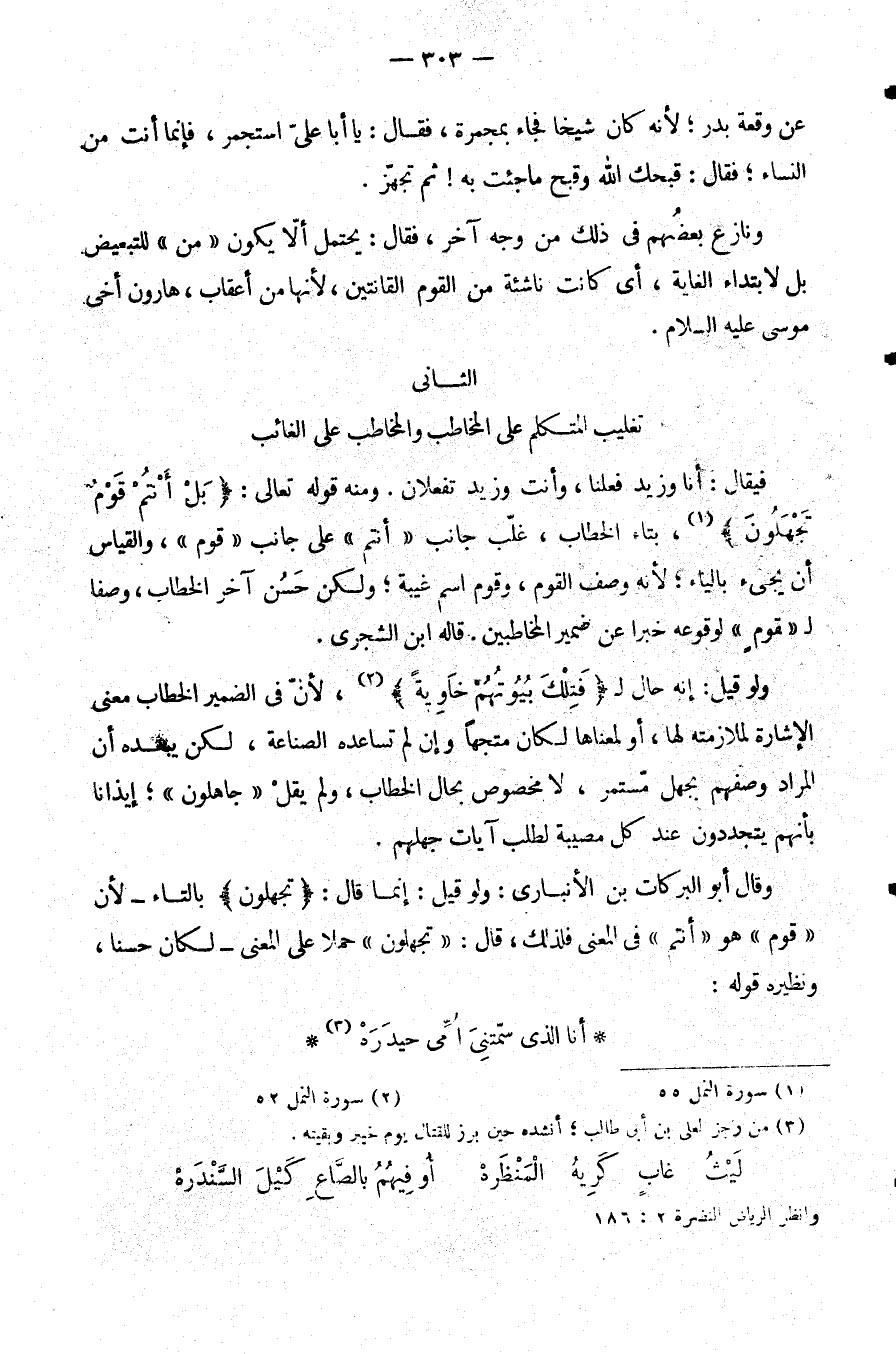 — ٣٠٣ —
عن وقعة بدر ؛ لأنه كان شيخا فجاء بمجمرة ، فقال : يا أبا علىّ استجمر ، فإنما أنت من
النساء ؛ فقال : قبحك الله وقبح ماجئت به ! ثم تجهّز .
ونازع بعضُهم فى ذلك من وجه آخر ، فقال : يحتمل ألّا يكون « من » للتبعيض
بل لابتداء الغاية ، أى كانت ناشئة من القوم القانتين ، لأنها من أعقاب ، هارون أخى
موسى عليه السلام .
الثانى
تغليب المتكلم على المخاطب والمخاطب على الغائب
فيقال : أنا وزيد فعلنا ، وأنت وزيد تفعلان . ومنه قوله تعالى : ﴿ بَلْ أَنْتُمْ قَوْمٌ
تَجْهَلُونَ ﴾ (١) ، بتاء الخطاب ، غلّب جانب « أنتم » على جانب « قوم » ، والقياس
أن يجىء بالياء ؛ لأنه وصف القوم ، وقوم اسم غيبة ؛ ولكن حَسُن آخر الخطاب ، وصفا
لـ « قوم » لوقوعه خبرا عن ضمير المخاطبين . قاله ابن الشجرى .
ولو قيل : إنه حال لـ ﴿ فَتِلْكَ بُيُوتُهُمْ خَاوِيةً ﴾ (٢) ، لأنّ فى الضمير الخطاب معنى
الإشارة لملازمته لها ، أو لمعناها لكان متجهاً وإن لم تساعده الصناعة ، لكن يبعده أن
المراد وصفهم بجهل مّستمر ، لا مخصوص بحال الخطاب ، ولم يقلْ « جاهلون » ؛ إيذانا
بأنهم يتجددون عند كل مصيبة لطلب آيات جهلهم .
وقال أبو البركات بن الأنبارى : ولو قيل : إنما قال : ﴿ تجهلون ﴾ بالتاء – لأن
« قوم » هو « أنتم » فى المعنى فلذلك ، قال : « تجهلون » حملا على المعنى – لكان حسنا ،
ونظيره قوله :
* أنا الذى سمّتنىَ اُمِّى حيدَرَهْ (٣) *
(١) سورة النمل ٥٥
(٢) سورة النمل ٥٢
(٣) من رجز لعلى بن أبى طالب ؛ أنشده حين برز للقتال يوم خيبر وبقيته .
لَيْثُ غابٍ كَرِيهُ الْمَنْظَرهْ أُوفِيهُمُ بالصَّاعِ كَيْلَ السَّنْدَرهْ
وانظر الرياض النضرة ٢ : ١٨٦